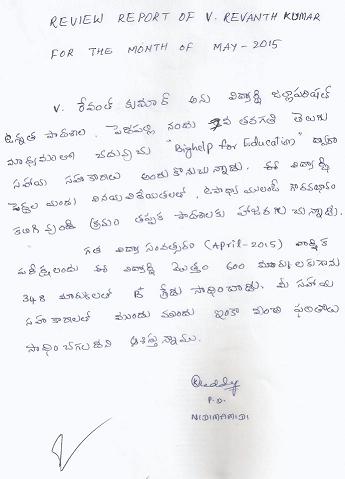 REVIEW REPORT OF V. REVANTH KUMAR
FOR THE MONTH OF MAY - 2015
V. రేవంత్ కుమార్ అను విద్యార్థి జిల్లాపరిషత్
ఉన్నత పాఠశాల, నందు 7వ తరగతి తెలుగు
మాధ్యమంలో చదువుచు "Bighelp for Education" ద్వారా
సహాయ సహకారాలు అందుకొనుచున్నాడు. ఈ విద్యార్థి
పెద్దల యందు వినయ విధేయతలతో, ఉపాధ్యాయులంటే గౌరవభావం
కలిగి వుండి క్రమం తప్పక పాఠశాలకు హాజరగుచున్నాడు.
గత విద్యా సంవత్సరం (April-2015) వార్షిక
పరీక్షలందు ఈ విద్యార్థి మొత్తం 600 మార్కులకుగాను
348 మార్కులతో B గ్రేడు సాధించాడు. మీ సహాయ
సహకారాలతో ముందు ముందు ఇంకా మంచి ఫలితాలు
సాధించగలడని ఆశిస్తున్నాము.
Reddy
P.D.
NIDIMAMIDI